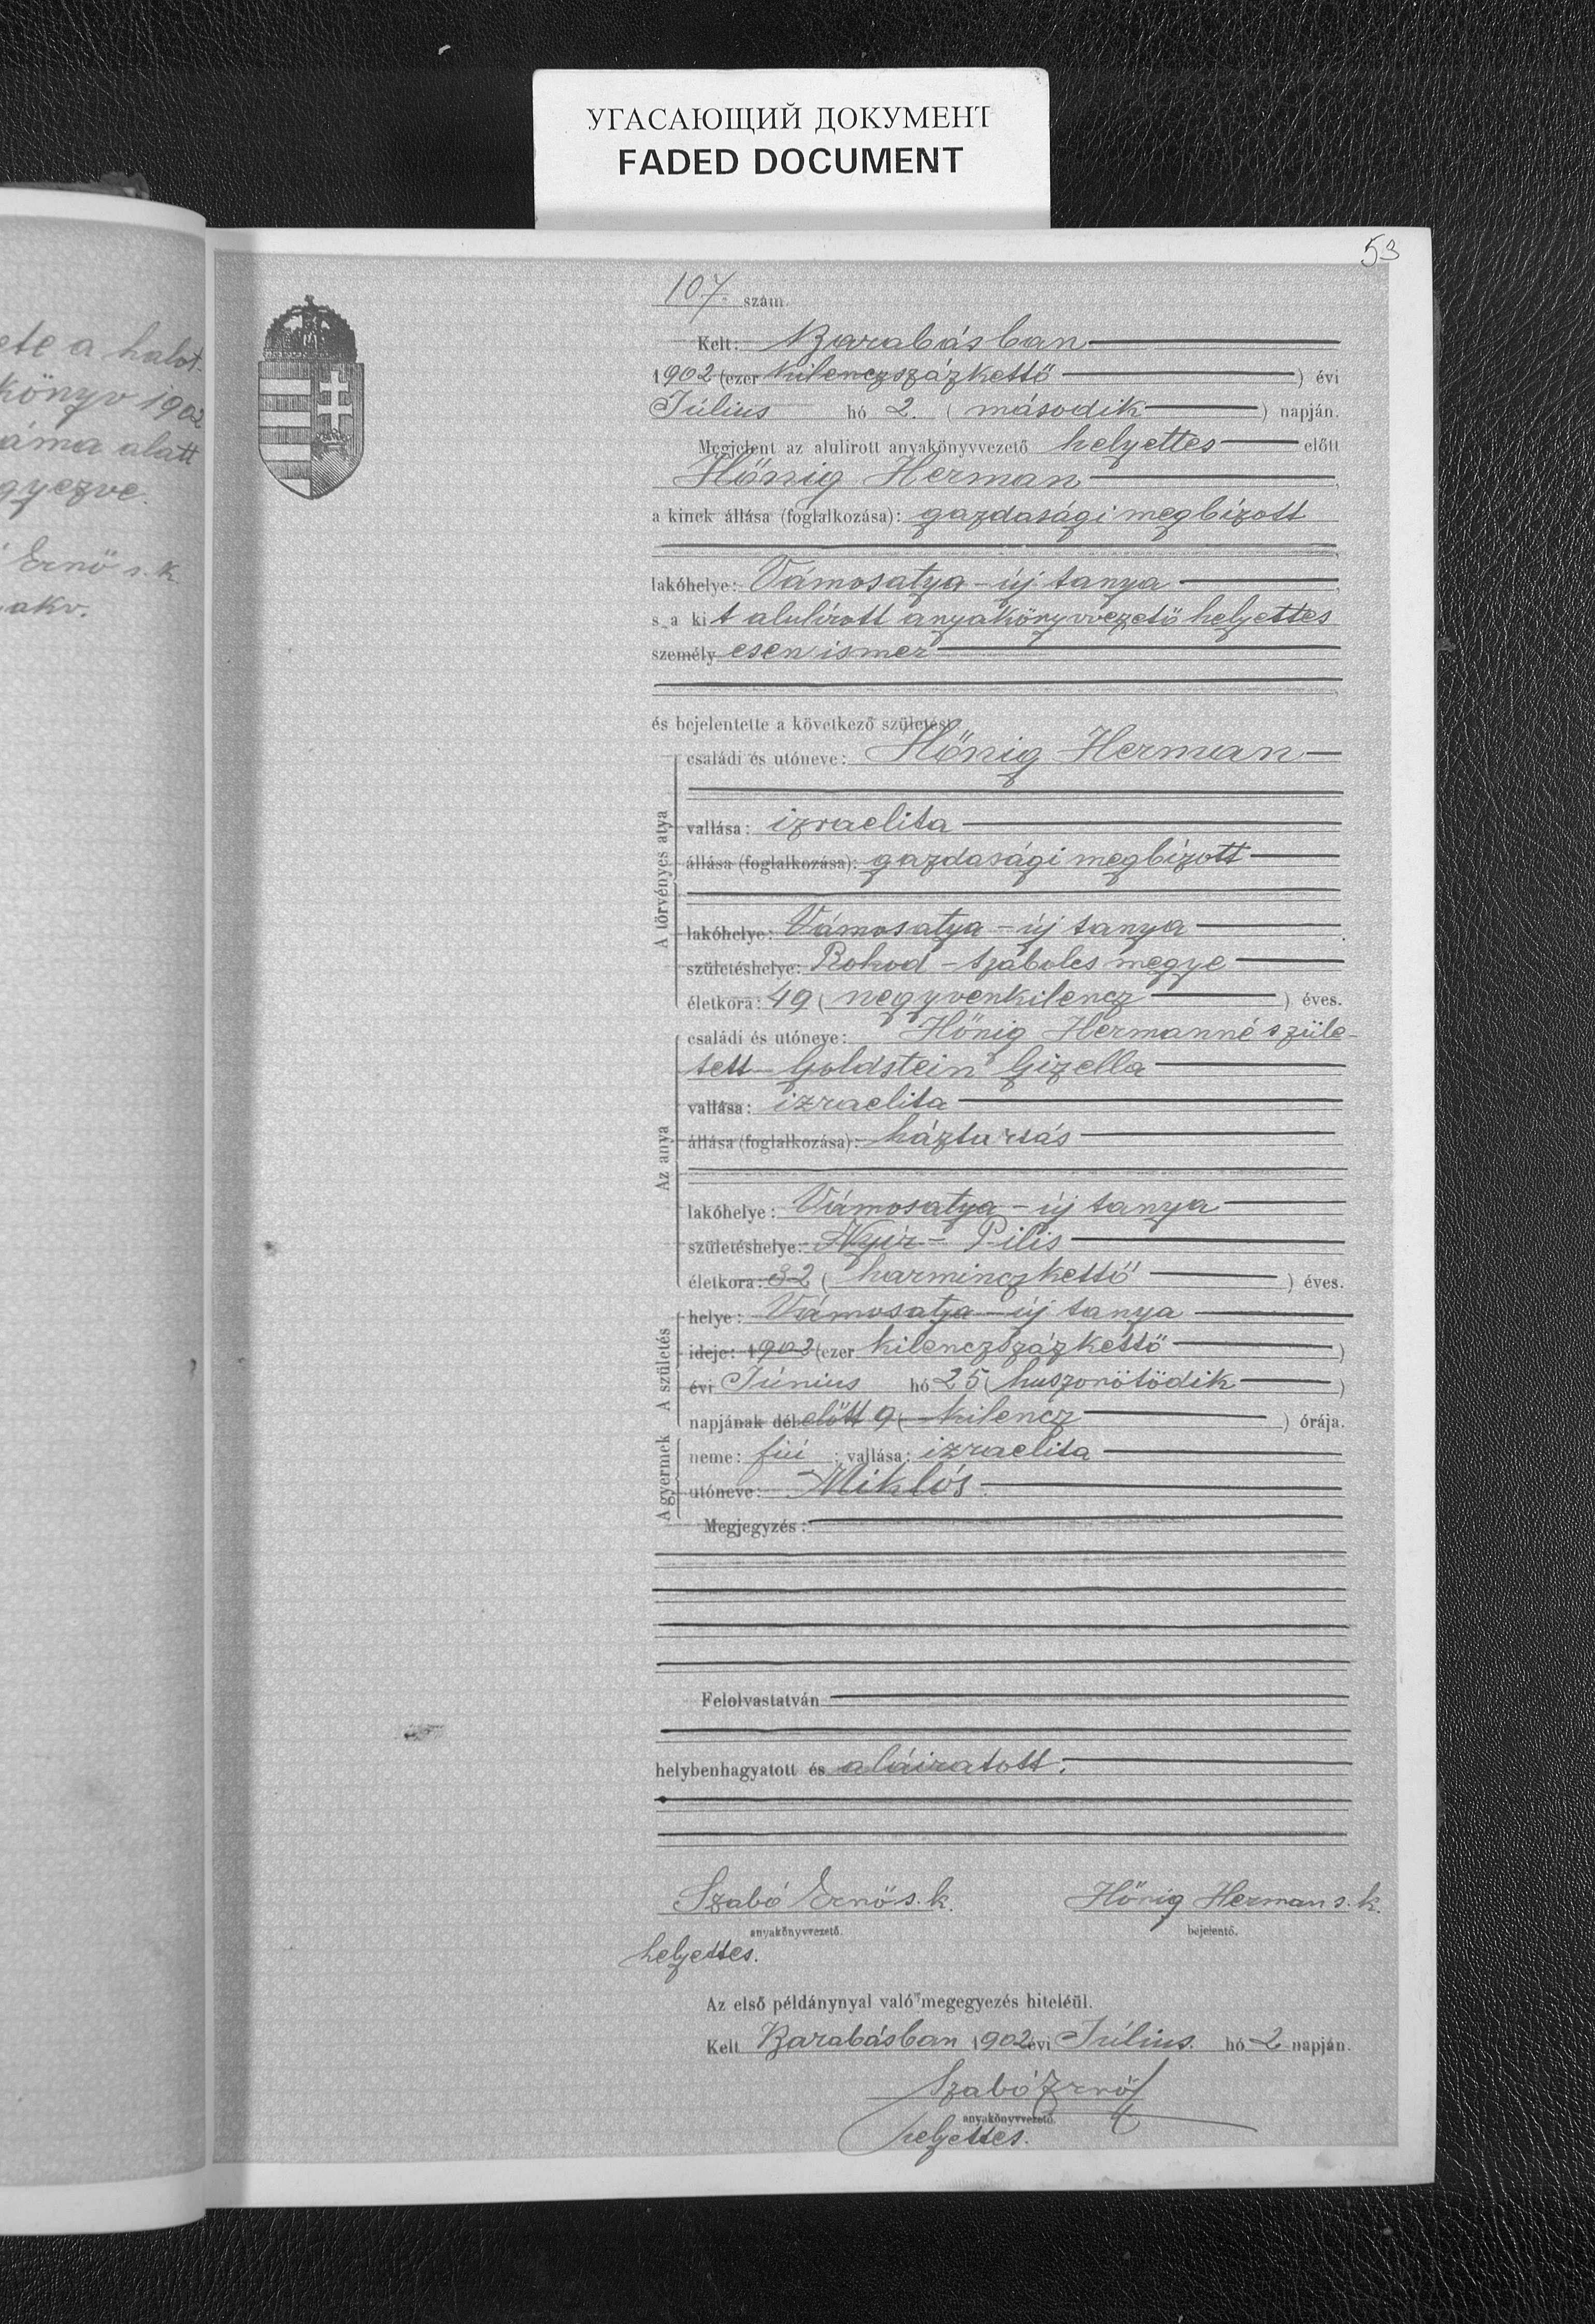 УГАСАЮЩИЙ ДОКУМЕНТ
FADED DOCUMENT
53
halot-
könyv 1902
alatt
Ernő s. k.
akv.
107. szám.
Kelt: Barabásban
1902 (ezer kilenczszázkettő) évi
Július hó 2. (második) napján.
Megjelent az alulirott anyakönyvvezető helyettes előtt
Hőnig Herman
a kinek állása (foglalkozása): gazdasági megbízott
lakóhelye: Vámosatya - új tanya
s a kit alulírott anyakönyvvezető helyettes
személyesen ismer
és bejelentette a következő születést
A törvényes atya
családi és utóneve: Hőnig Herman
vallása: izraelita
állása (foglalkozása): gazdasági megbízott
lakóhelye: Vámosatya - új tanya
születéshelye: Rohod - Szabolcs megye
életkora: 49 (negyvenkilencz) éves.
Az anya
családi és utóneve: Hőnig Hermanné szüle-
tett Goldstein Gizella
vallása: izraelita
állása (foglalkozása): háztartás
lakóhelye: Vámosatya - új tanya
születéshelye: Nyír - Pilis
életkora: 32 (harminczkettő) éves.
A születés
helye: Vámosatya - új tanya
ideje: 1902 (ezer kilenczszázkettő)
évi Június hó 25 (huszonötödik)
napjának délelőtt 9 (kilencz) órája.
A gyermek
neme: fiú; vallása: izraelita
utóneve: Miklós
Megjegyzés:
Felolvastatván
helybenhagyatott és aláiratott.
Szabó Ernő s. k. Hőnig Herman s. k.
anyakönyvvezető. bejelentő.
helyettes.
Az első példánynyal való megegyezés hiteléül.
Kelt Barabásban 1902 évi Július. hó 2 napján.
Szabó Ernő
anyakönyvvezető.
helyettes.